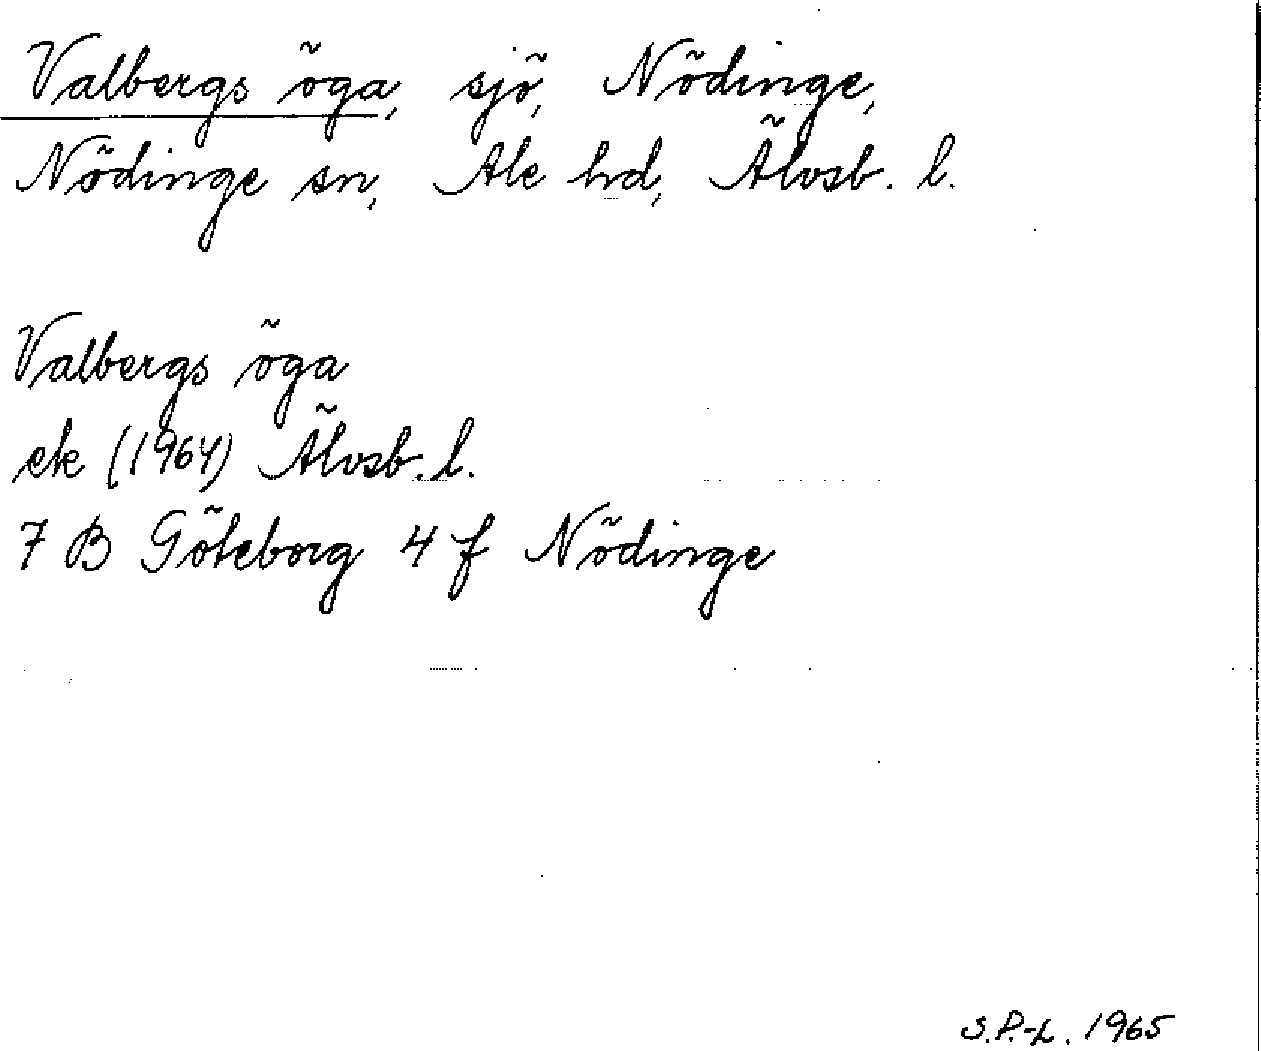 Valbergs öga, sjö, Nödinge,
Nödinge sn, Ale hd, Älvsb. l.
Valbergs öga
ek (1964) Älvsb. l.
7 B Göteborg 4 f Nödinge
S.P.-L. 1965